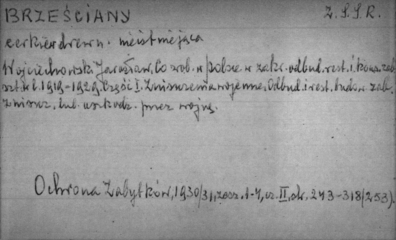 BRZEŚCIANY Z.S.S.R.
cerkiew drewn. nieistniejąca
Wojciechowski Jarosław, Co zrob. w Polsce w zakr. odbud. rest. i kons. zab.
szt. w l. 1919-1929. Część I. Zniszczenia wojenne, Odbud. i rest. budow. zab.
zniszcz. lub uszkodz. przez wojnę.
Ochrona Zabytków, 1930/31, zesz. 1-4, cz. II, str. 243-318/253).